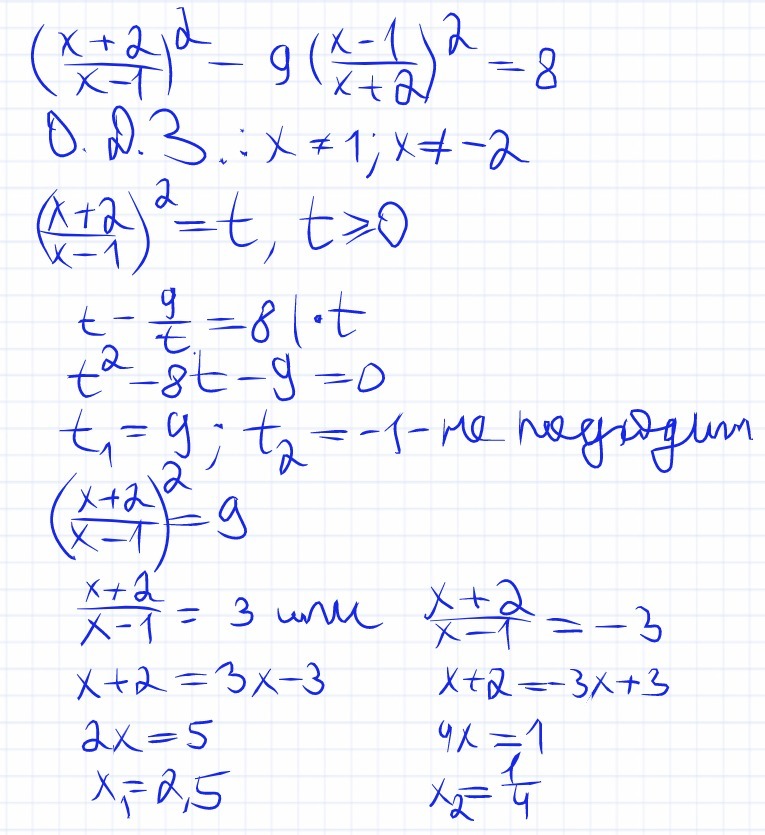 (x+2/x-1)² - 9(x-1/x+2)² = 8
О.Д.З.: x ≠ 1; x ≠ -2
(x+2/x-1)² = t, t ⩾ 0
t - 9/t = 8 | · t
t² - 8t - 9 = 0
t₁ = 9; t₂ = -1 - не подходит
(x+2/x-1)² = 9
x+2/x-1 = 3 или x+2/x-1 = -3
x+2 = 3x-3 x+2 = -3x+3
2x = 5 4x = 1
x₁ = 2,5 x₂ = 1/4